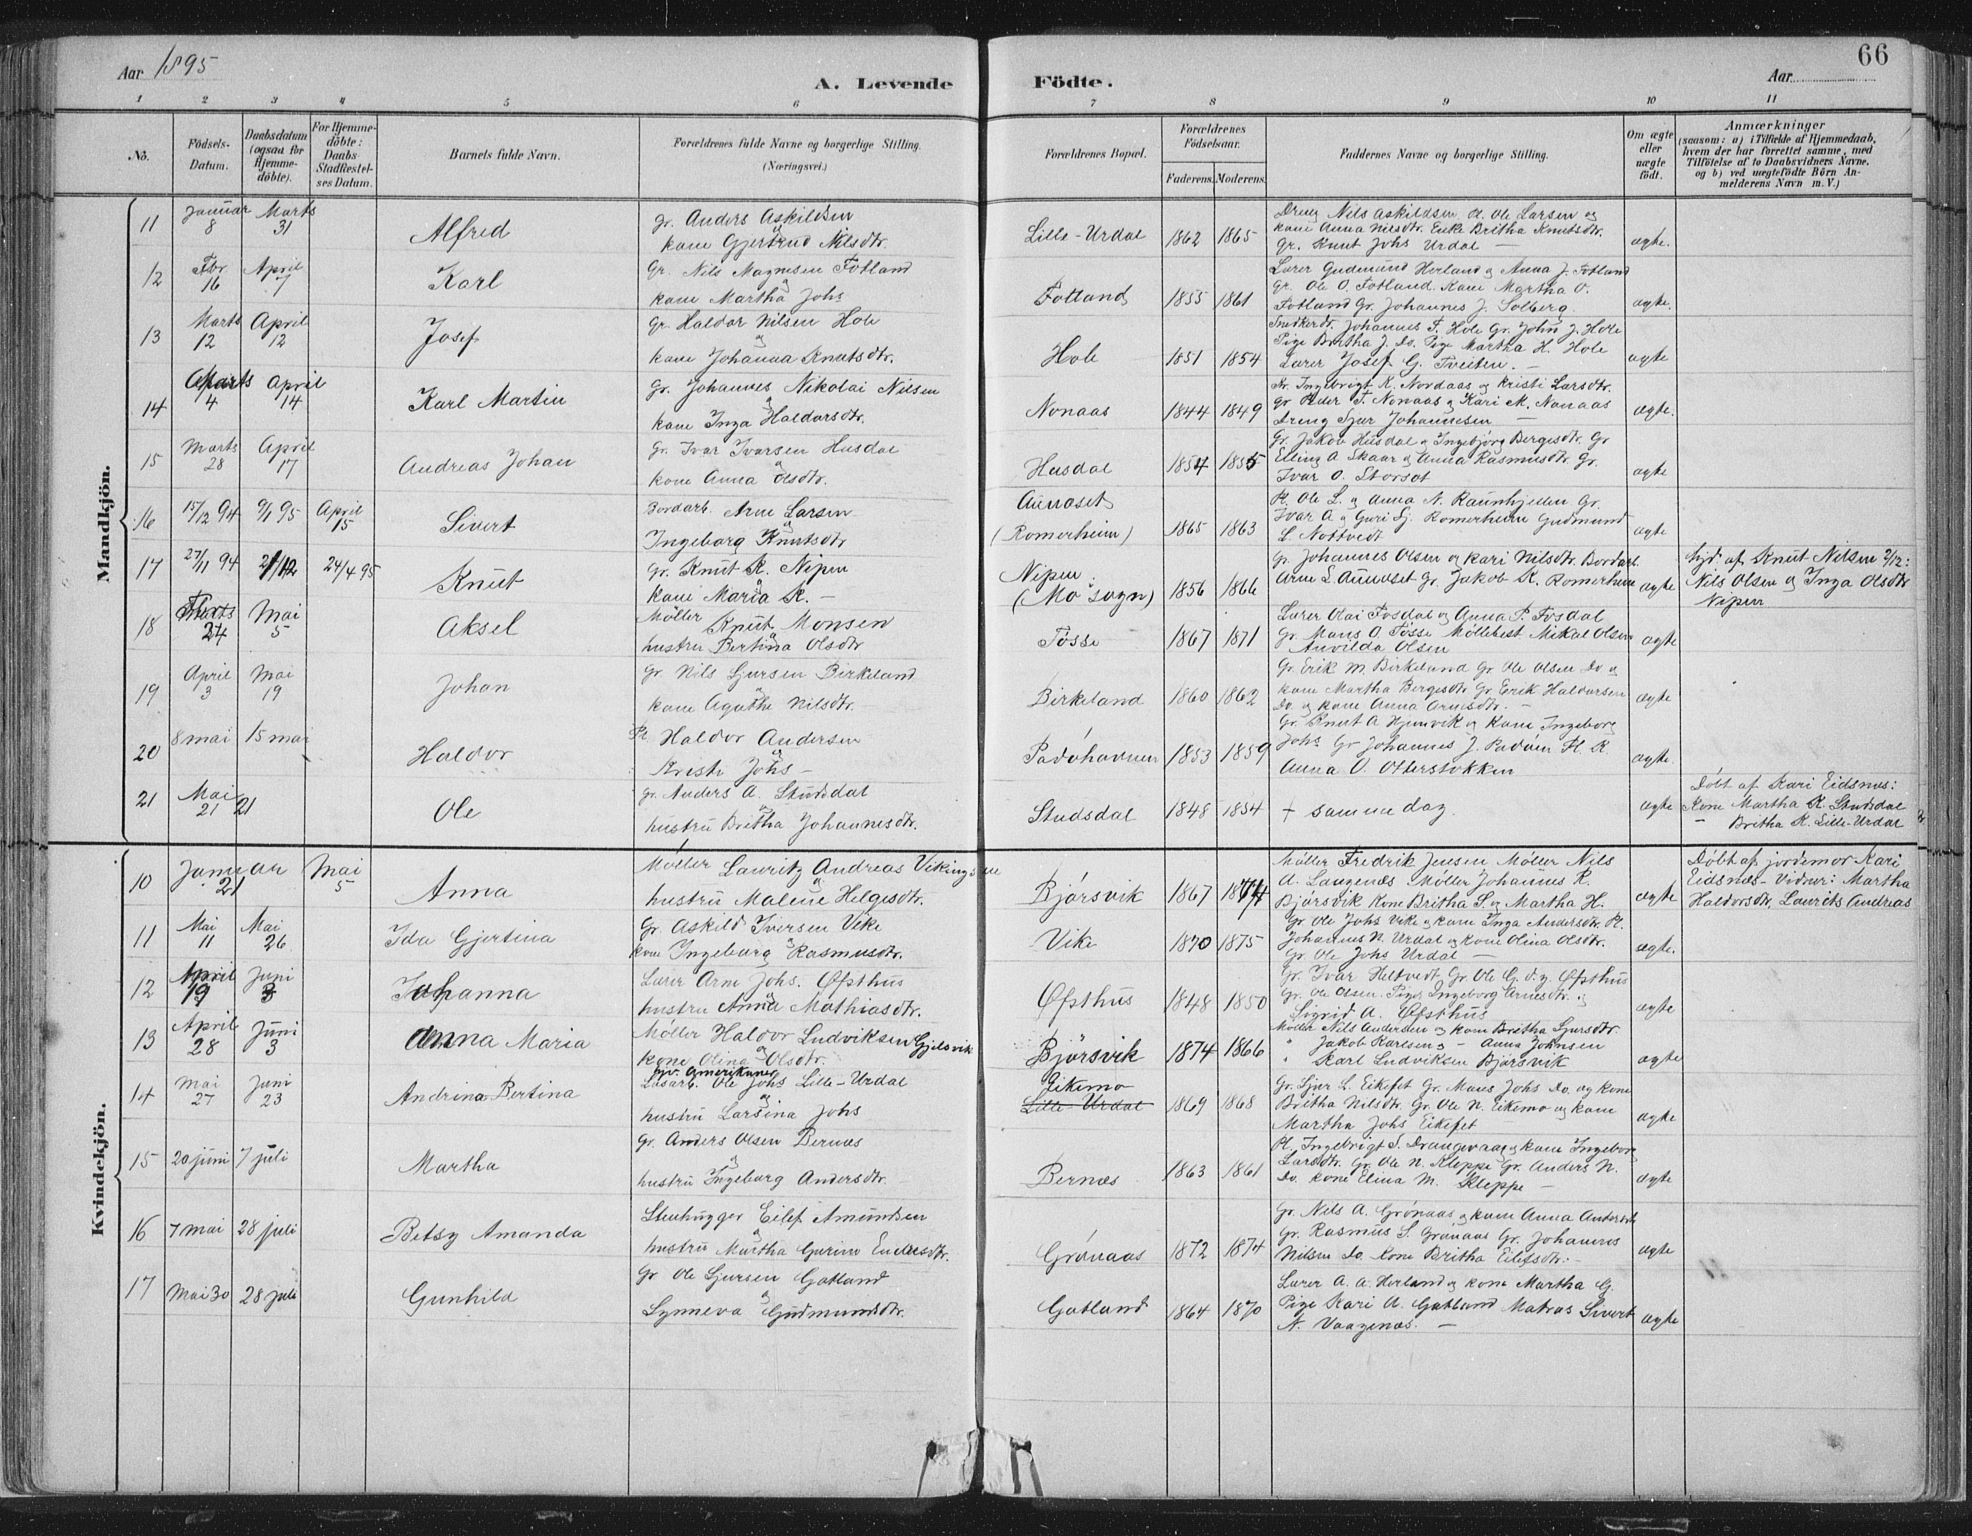 66
Aar 1895
A. Levende Födte.
Aar
1 2 3 4 5 6 7 8 9 10 11
No.
Födsels-Datum.
Daabsdatum (ogsaa for Hjemme-döbte).
For Hjemme-döbte: Daabs-Stadfæstelses Datum.
Barnets fulde Navn.
Forældrenes fulde Navne og borgerlige Stilling. (Næringsvei.)
Forældrenes Bopæl.
Forældrenes Födselsaar.
Faderens. Moderens.
Faddernes Navne og borgerlige Stilling.
Om ægte eller uægte födt.
Anmærkninger
(saasom: a) i Tilfælde af Hjemmedaab, hvem der har forrettet samme, med Tilföielse af to Daabsvidners Navne, og b) ved uægtefödte Börn Anmelderens Navn m. V.)
Mandkjön.
11 Januar 8 Marts 31 Alfred Gr. Anders Askildsen og kone Gjertrud Nilsdtr. Lille-Urdal 1862 1865 Dreng Nils Askildsen Pl. Ole Larsen og
kone Anna Nilsdtr. Enke Britha Knutsdtr.
Gr. Knut Johs Urdal — ægte.
12 Fbr 16 April 7 Karl Gr. Nils Magnesen Fotland og kone Martha Johs Fotland 1855 1861 Lærer Gudmund Herland og Anna J. Fotland
Gr. Ole O. Fotland. Kone Martha O.
Fotland Gr. Johannes J. Solberg. ægte.
13 Marts 12 April 12 Josef Gr. Haldor Nilsen Hole og kone Johanna Knutsdtr. Hole 1851 1854 Snedkerdr. Johannes T. Hole Gr. John J. Hole
Pige Britha J. Do. Pige Martha H. Hole
Lærer Josef G. Tveiten. — ægte
14 Marts 4 April 14 Karl Martin Gr. Johannes Nikolai Nilsen og kone Inga Haldorsdtr. Nonaas 1844 1849 Kr. Ingebrigt K. Nordaas og Kristi Larsdtr.
Gr Peder T. Nonaas og Kari M. Nonaas
Dreng Sjur Johannesen — ægte.
15 Marts 28 April 17 Andreas Johan Gr. Ivar Ivarsen Husdal og kone Anna Olsdtr. Husdal 1854 1855 Gr. Jakob Husdal og Ingebjörg Bergesdtr. Gr
Elling A Skaar og Anna Rasmusdtr. Gr.
Ivar O. Storset ægte
16 15/12 94 9/1 95 April 15 Sivert Bordarb. Arne Larsen og Ingeborg Knutsdtr Aunaset (Romerheim) 1865 1863 Pl. Ole L. og Anna N. Raunhjellen Gr.
Ivar A og Guri Sj. Romerheim Gudmund
L Nottvedt ægte
17 27/11 94 2/12 24/4 95 Knut Gr. Knut K. Nipen og kone Maria K. — Nipen (Mo sogn) 1856 1866 Gr Johannes Olsen og Kari Nilsdtr Bordarb.
Arne L Aunaset Gr. Jakob K. Romerheim ægte hjd. af Knut Nilsen 2/12:
Nils Olsen og Inga Olsdtr
Nipen
18 24 Mai 5 Aksel Möller Knut Monsen og hustru Bertina Olsdtr Tøsse 1867 1871 Lærer Olai Fosdal og Anna P. Fosdal
Gr. Mons O. Tøsse Möllebest Mikal Olsen
Anvilda Olsen ægte
19 April 3 Mai 19 Johan Gr. Nils Sjursen Birkeland og kone Agathe Nilsdtr. Birkeland 1860 1862 Gr. Erik M. Birkeland Gr Ole Olsen Do og
kone Martha Bergesdtr Gr. Erik Haldorsen
Do og kone Anna Arnesdtr. — ægte
20 8 mai 15 mai Haldor Pl Haldor Andersen og Kristi Johs — Padøhavnen 1853 1859 Gr. Knut A Hjelmvik og kone Ingeborg
Johs Gr Johannes J. Padøen Pl. K.
Anna O. Otterstokken ægte.
21 Mai 21 21 Ole Gr. Anders A. Studsdal og hustru Britha Johannesdtr. Studsdal 1848 1854 + samme dag ægte Döbt af Kari Eidsnes:
Kone Martha K. Studsdal
— Britha K. Lille-Urdal
Kvindekjön.
10 Januar 21 Mai 5 Anna Möller Lauritz Andreas Vikingsen og hustru Malene Helgesdtr. Bjørsvik 1867 1874 Möller Fredrik Jensen Möller Nils
A. Langenæs Möller Johannes R.
Bjørsvik Kone Britha S. og Martha H. ægte Döbt af jordemor Kari
Eidsnes. Vidner: Martha
Haldorsdtr, Laurits Andreas
11 Mai 11 Mai 26 Ida Gjertina Gr. Askild Iversen Vike og kone Ingeborg Rasmusdtr. Vike 1870 1875 Gr. Ole Johs Vike og kone Inga Andersdtr Pl.
Johannes N. Urdal og kone Olina Olsdtr.
Gr Ole Johs Urdal — ægte.
12 April 19 Juni 3 Johanna Lærer Arne Johs. Øpsthus og hustru Anna Mathiasdtr. Øpsthus 1848 1850 Gr. Ivar Heltvedt Gr. Ole G. d.y Øpsthus
Gr. Ole Olsen. Pige Ingeborg Arnesdtr. og
Sigrid A. Øpsthus ægte
13 April 28 Juni 3 Anna Maria Möller Haldor Ludviksen Gjelsvik og kone Olina Olsdtr. Bjørsvik 1874 1866 Møller Nils Andersen og kone Britha Sjursdtr
" Jakob Karlsen og — Anna Johnsen
" Karl Ludviksen Bjørsvik ægte
14 Mai 27 Juni 23 Andrina Bertina Løsarb. Ole Johs Lille-Urdal og hustru Larsina Johs Eikemo
Lille-Urdal 1869 1868 Gr. Sjur L. Eikefet Gr. Mons Johs Do. og kone
Britha Nilsdtr. Gr. Ole N. Eikemo og kone
Martha Johs Eikefet ægte
15 20 juni 7 juli Martha Gr. Anders Olsen Bernes og hustru Ingeborg Andersdtr. Bernæs 1863 1861 Pl. Ingebrigt S. Drangevaag og kone Ingeborg
Larsdtr. Gr. Ole N. Kleppe Gr. Anders N.
Do. kone Elina M. Kleppe — ægte
16 7 mai 28 juli Betsy Amanda Stenhugger Eilef Amundsen og hustru Martha Gurine Endresdtr. Grønaas 1872 1874 Gr. Nils A. Grønaas og kone Anna Andersdtr
Gr. Rasmus S. Grønaas Gr. Johannes
Nilsen Do. Kone Britha Eilefsdtr. ægte
17 Mai 30 28 juli Gunhild Gr Ole Sjursen Gatland og Synneva Gudmundsdtr. Gatland 1864 1870 Lærer A. A. Herland og kone Martha G.
Pige Kari A. Gatland Matros Sivert
N. Vaagenæs. — ægte